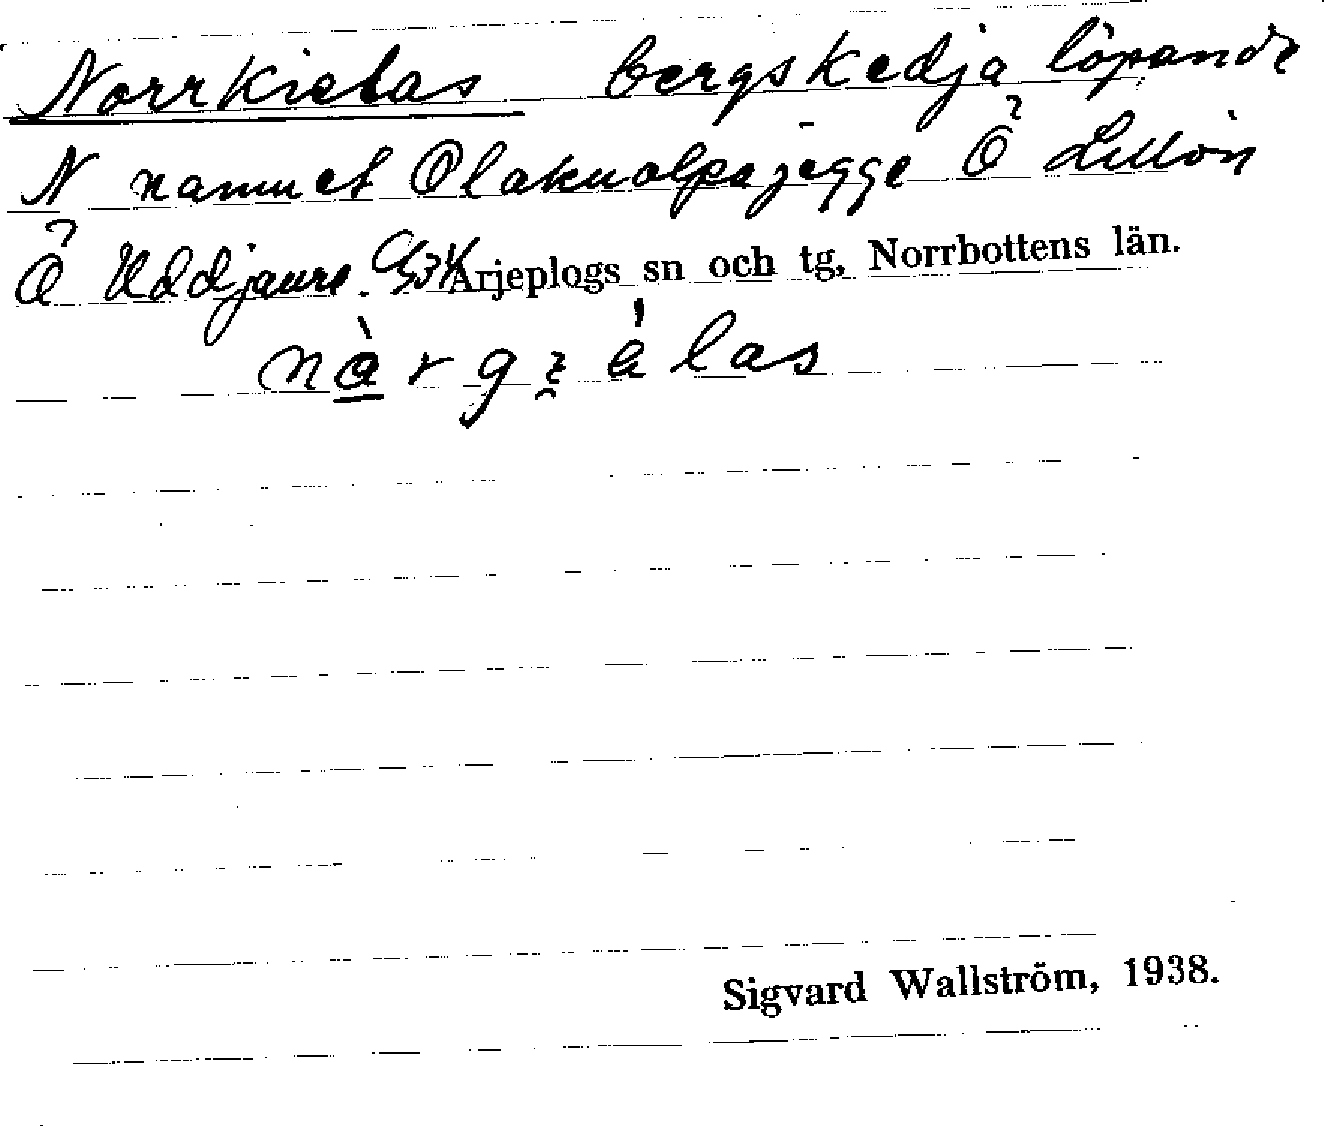 Norrkielas bergskedja löpande
N namnet Olakualpajegge Ö Lillön
Ö Uddjaure. G531 Arjeplogs sn och tg, Norrbottens län.
Sigvard Wallström, 1938.